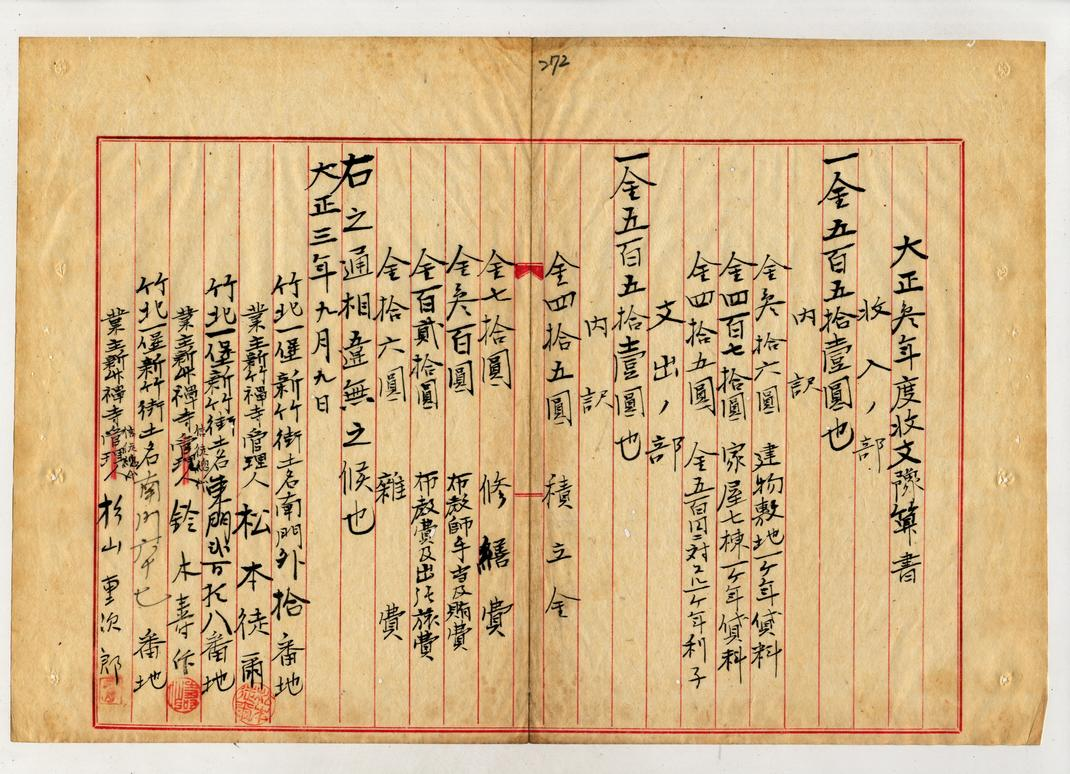 272
大正叁年度收支豫算書
收入ノ部
一金五百五拾壹圓也
內訳
金叁拾六圓 建物敷地一ケ年貸料
金四百七拾圓 家屋七棟一ケ年貸料
金四拾五圓 金五百円ニ対スル一ケ年利子
支出ノ部
一金五百五拾壹圓也
內訳
金四拾五圓 積立金
金七拾圓 修繕費
金叁百圓 布教師手当及賄費
金百貳拾圓 布教費及出張旅費
金拾六圓 雜費
右之通相違無之候也
大正三年九月九日
竹北一堡新竹街土名南門外拾番地
業主新竹禪寺管理人 松本徒爾
竹北一堡新竹街土名東門百拾八番地
業主新竹禪寺信徒總代 鈴木壽作
竹北一堡新竹街土名南門番地
業主新竹禪寺信徒總代 杉山重次郎